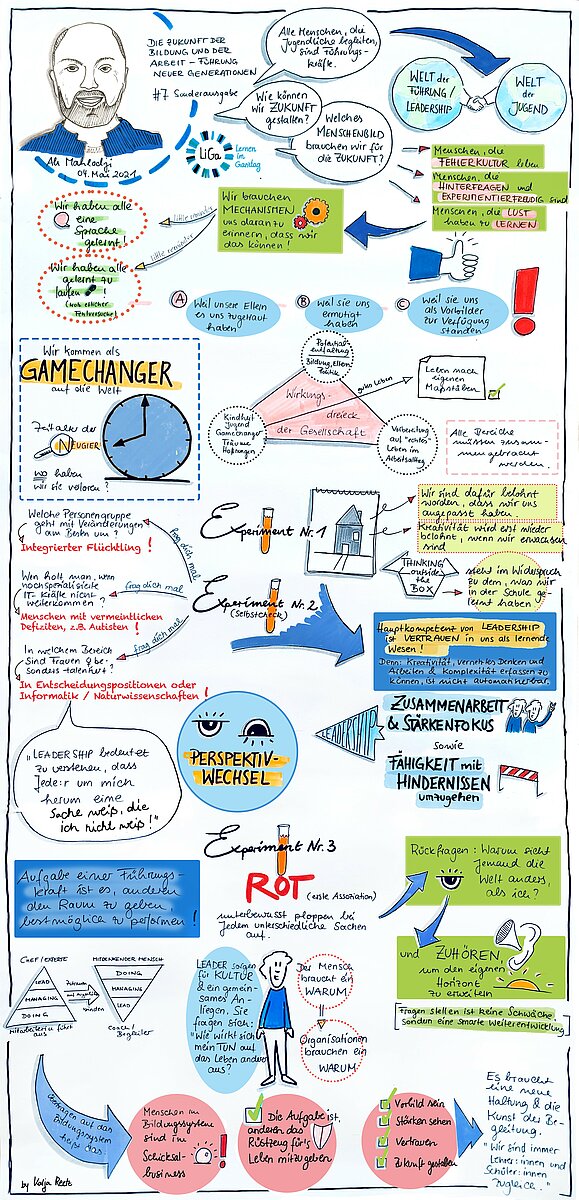 DIE ZUKUNFT DER
BILDUNG UND DER
ARBEIT – FÜHRUNG
NEUER GENERATIONEN
#7 Sonderausgabe
Ali Mahlodji
04. Mai 2021
LiGa
Lernen
im
Ganztag
Alle Menschen, die
Jugendliche begleiten,
sind Führungs-
kräfte.
Wie können
wir ZUKUNFT
gestalten?
Welches
MENSCHENBILD
brauchen wir für
die ZUKUNFT?
WELT der
FÜHRUNG /
LEADERSHIP
WELT
der
JUGEND
Menschen, die
FEHLERKULTUR leben
Menschen, die
HINTERFRAGEN und
EXPERIMENTIERFREUDIG sind
Menschen, die LUST
haben zu LERNEN
Wir brauchen
MECHANISMEN
uns daran zu
erinnern, dass wir
das können!
little reminder
little reminder
Wir haben alle
eine
Sprache
gelernt!
Wir haben alle
gelernt zu
laufen!
(trotz etlicher
Fehlversuche!)
A
Weil unsere Eltern
es uns zugetraut
haben
B
weil sie uns
ermutigt
haben
C
Weil sie uns
als Vorbilder
zur Verfügung
standen
Wir kommen als
GAMECHANGER
auf die Welt
Zeitalter der
NEUGIER
wo haben
wir sie verloren?
Potenzial-
entfaltung
Bildung, Eltern
Politik
Wirkungs-
dreieck
der Gesellschaft
Kindheit
Jugend
Gamechanger
Träume
Hoffnungen
Vorbereitung
auf "echtes"
Leben im
Arbeitsalltag
gutes Leben
Leben nach
eigenen
Maßstäben
Alle Bereiche
müssen zusam-
men gebracht
werden.
Welche Personengruppe
geht mit Veränderungen
am Besten um?
Integrierter Flüchtling!
frag dich mal
Wen holt man, wenn
hochspezialisierte
IT-Kräfte nicht
weiterkommen?
frag dich mal
Menschen mit vermeintlichen
Defiziten, z.B. Autisten!
frag dich mal
In welchem Bereich
sind Frauen be-
sonders talentiert?
In Entscheidungspositionen oder
Informatik / Naturwissenschaften!
Experiment Nr. 1
Wir sind dafür belohnt
worden, dass wir uns
angepasst haben.
Kreativität wird erst wieder
belohnt, wenn wir erwachsen
sind
THINKING
outside
the
BOX
steht im Widerspruch
zu dem, was wir
in der Schule ge-
lernt haben
Experiment Nr. 2
(Selbstcheck)
Hauptkompetenz von LEADERSHIP
ist VERTRAUEN in uns als lernende
Wesen!
Denn: Kreativität, vernetztes Denken und
Arbeiten & Komplexität erfassen zu
können, ist nicht automatisierbar.
"LEADERSHIP bedeutet
zu verstehen, dass
Jede:r um mich
herum eine
Sache weiß, die
ich nicht weiß!"
PERSPEKTIV-
WECHSEL
LEADERSHIP
ZUSAMMENARBEIT
& STÄRKENFOKUS
sowie
FÄHIGKEIT mit
HINDERNISSEN
umzugehen
Experiment Nr. 3
ROT (erste Assoziation)
unterbewusst ploppen bei
jedem unterschiedliche Sachen
auf.
Aufgabe einer Führungs-
kraft ist es, anderen
den Raum zu geben,
bestmöglich zu performen!
Rückfragen: Warum sieht
jemand die
Welt anders,
als ich?
und ZUHÖREN,
um den eigenen
Horizont
zu erweitern
Fragen stellen ist keine Schwäche,
sondern eine smarte Weiterentwicklung
CHEF / EXPERTE
LEAD
MANAGING
DOING
Mitarbeiter:in führt
aus
MITDENKENDER MENSCH
DOING
MANAGING
LEAD
Coach /
Begleiter
LEADER sorgen
für KULTUR
& ein gemein-
sames An-
liegen. Sie
fragen sich:
"Wie wirkt sich
mein TUN auf
das Leben anderer
aus?
Der Mensch
braucht ein
WARUM!
Organisationen
brauchen ein
WARUM
Übertragen auf das
Bildungssystem
heißt das:
Menschen im
Bildungssystem
sind im
Schicksal-
business
Die Aufgabe ist,
anderen das
Rüstzeug für's
Leben mitzugeben
Vorbild sein
Stärken sehen
Vertrauen
Zukunft gestalten
Es braucht
eine neue
Haltung & die
Kunst der Be-
gleitung.
"Wir sind immer
Lehrer:innen und
Schüler:innen
zugleich."
by Katja Reetz